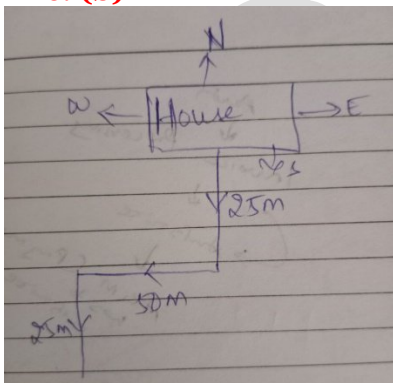 N
W House E
S
25m
50m
25m